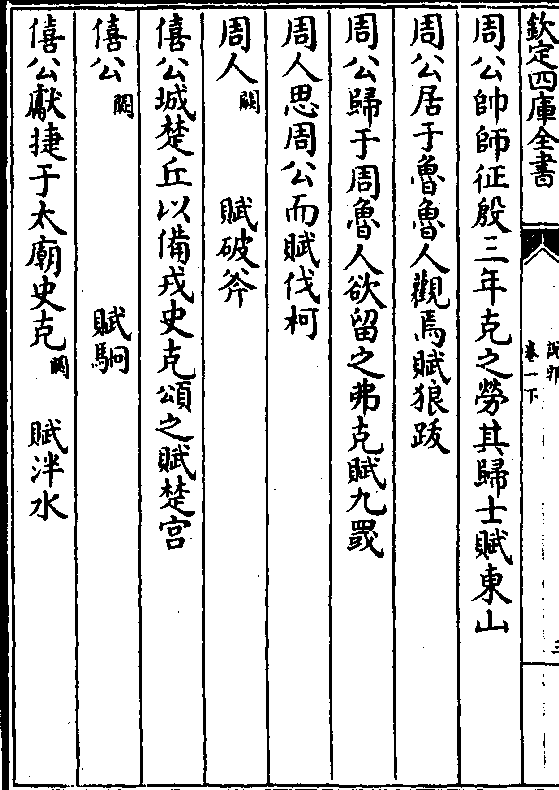 欽定四庫全書
卷一下
周公帥師征殷三年克之勞其歸士賦東山
周公居于魯魯人觀焉賦狼跋
周公歸于周魯人欲留之弗克賦九罭
周人思周公而賦伐柯
周人闕 賦破斧
僖公城楚丘以備戎史克頌之賦楚宫
僖公闕 賦駉
僖公獻捷于太廟史克闕 賦泮水